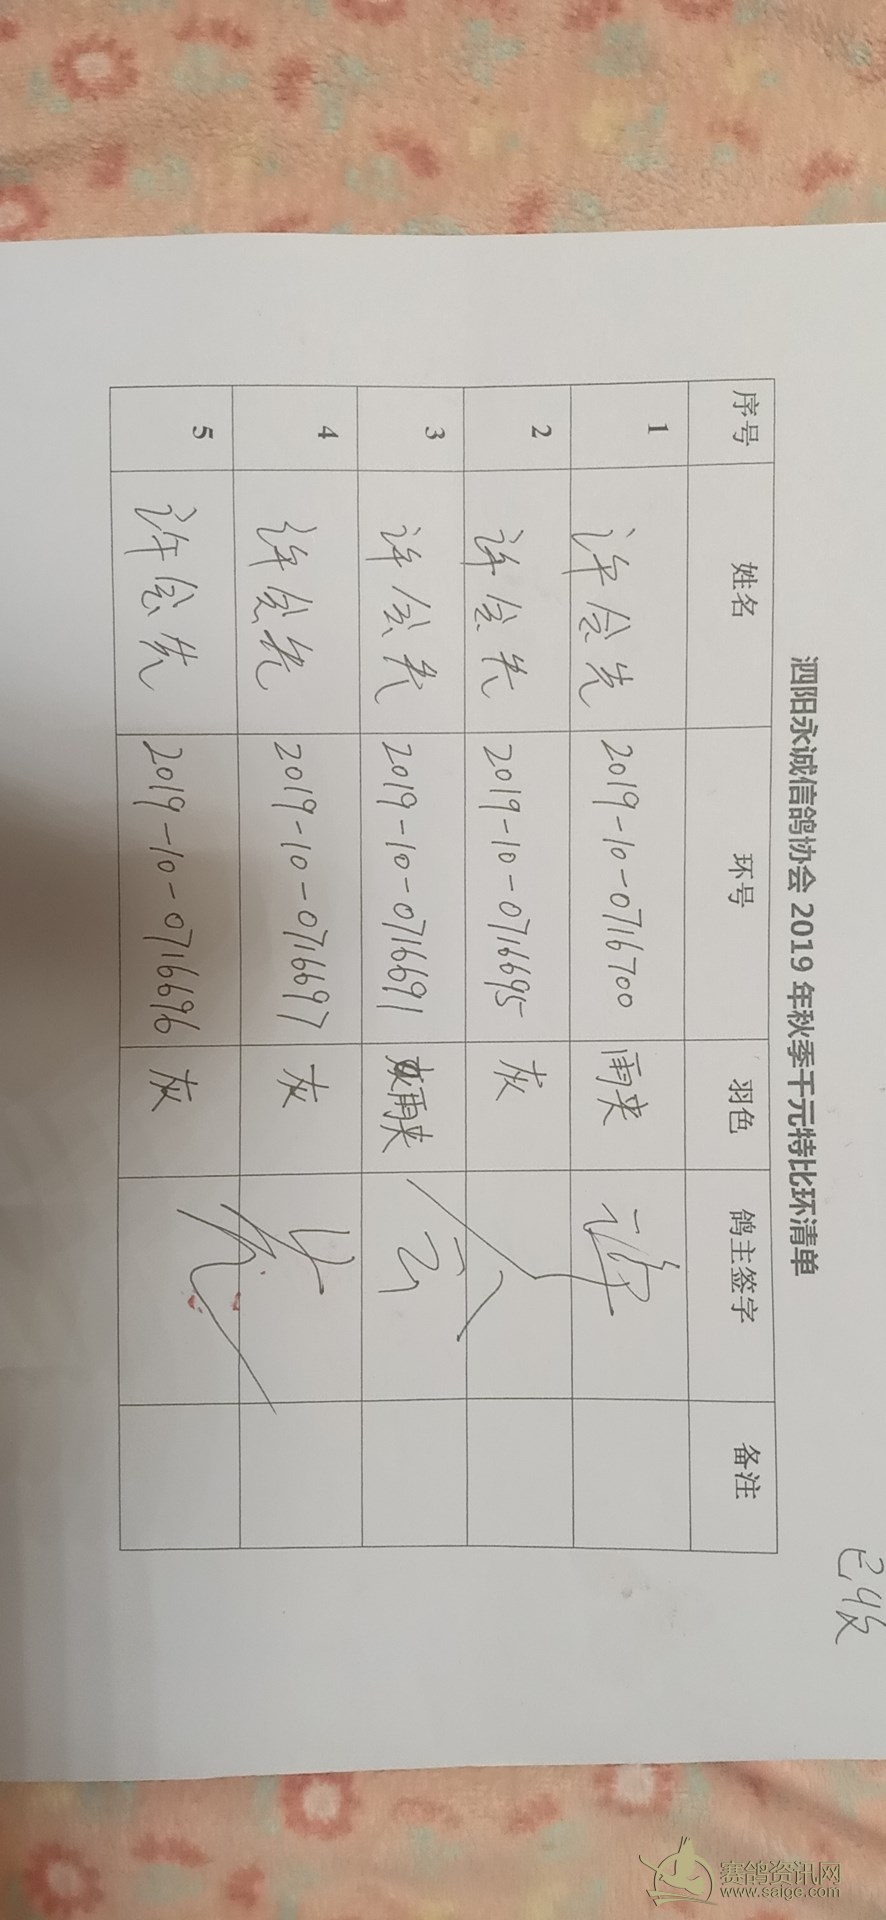 已收
泗阳永诚信鸽协会 2019 年秋季千元特比环清单
序号 姓名 环号 羽色 鸽主签字 备注
1 许会先 2019-10-0716700 雨夹 许
2 许会先 2019-10-0716695 灰 会
3 许会先 2019-10-0716691 雨夹
4 许会先 2019-10-0716697 灰 先
5 许会先 2019-10-0716696 灰
赛鸽资讯网
www.saige.com